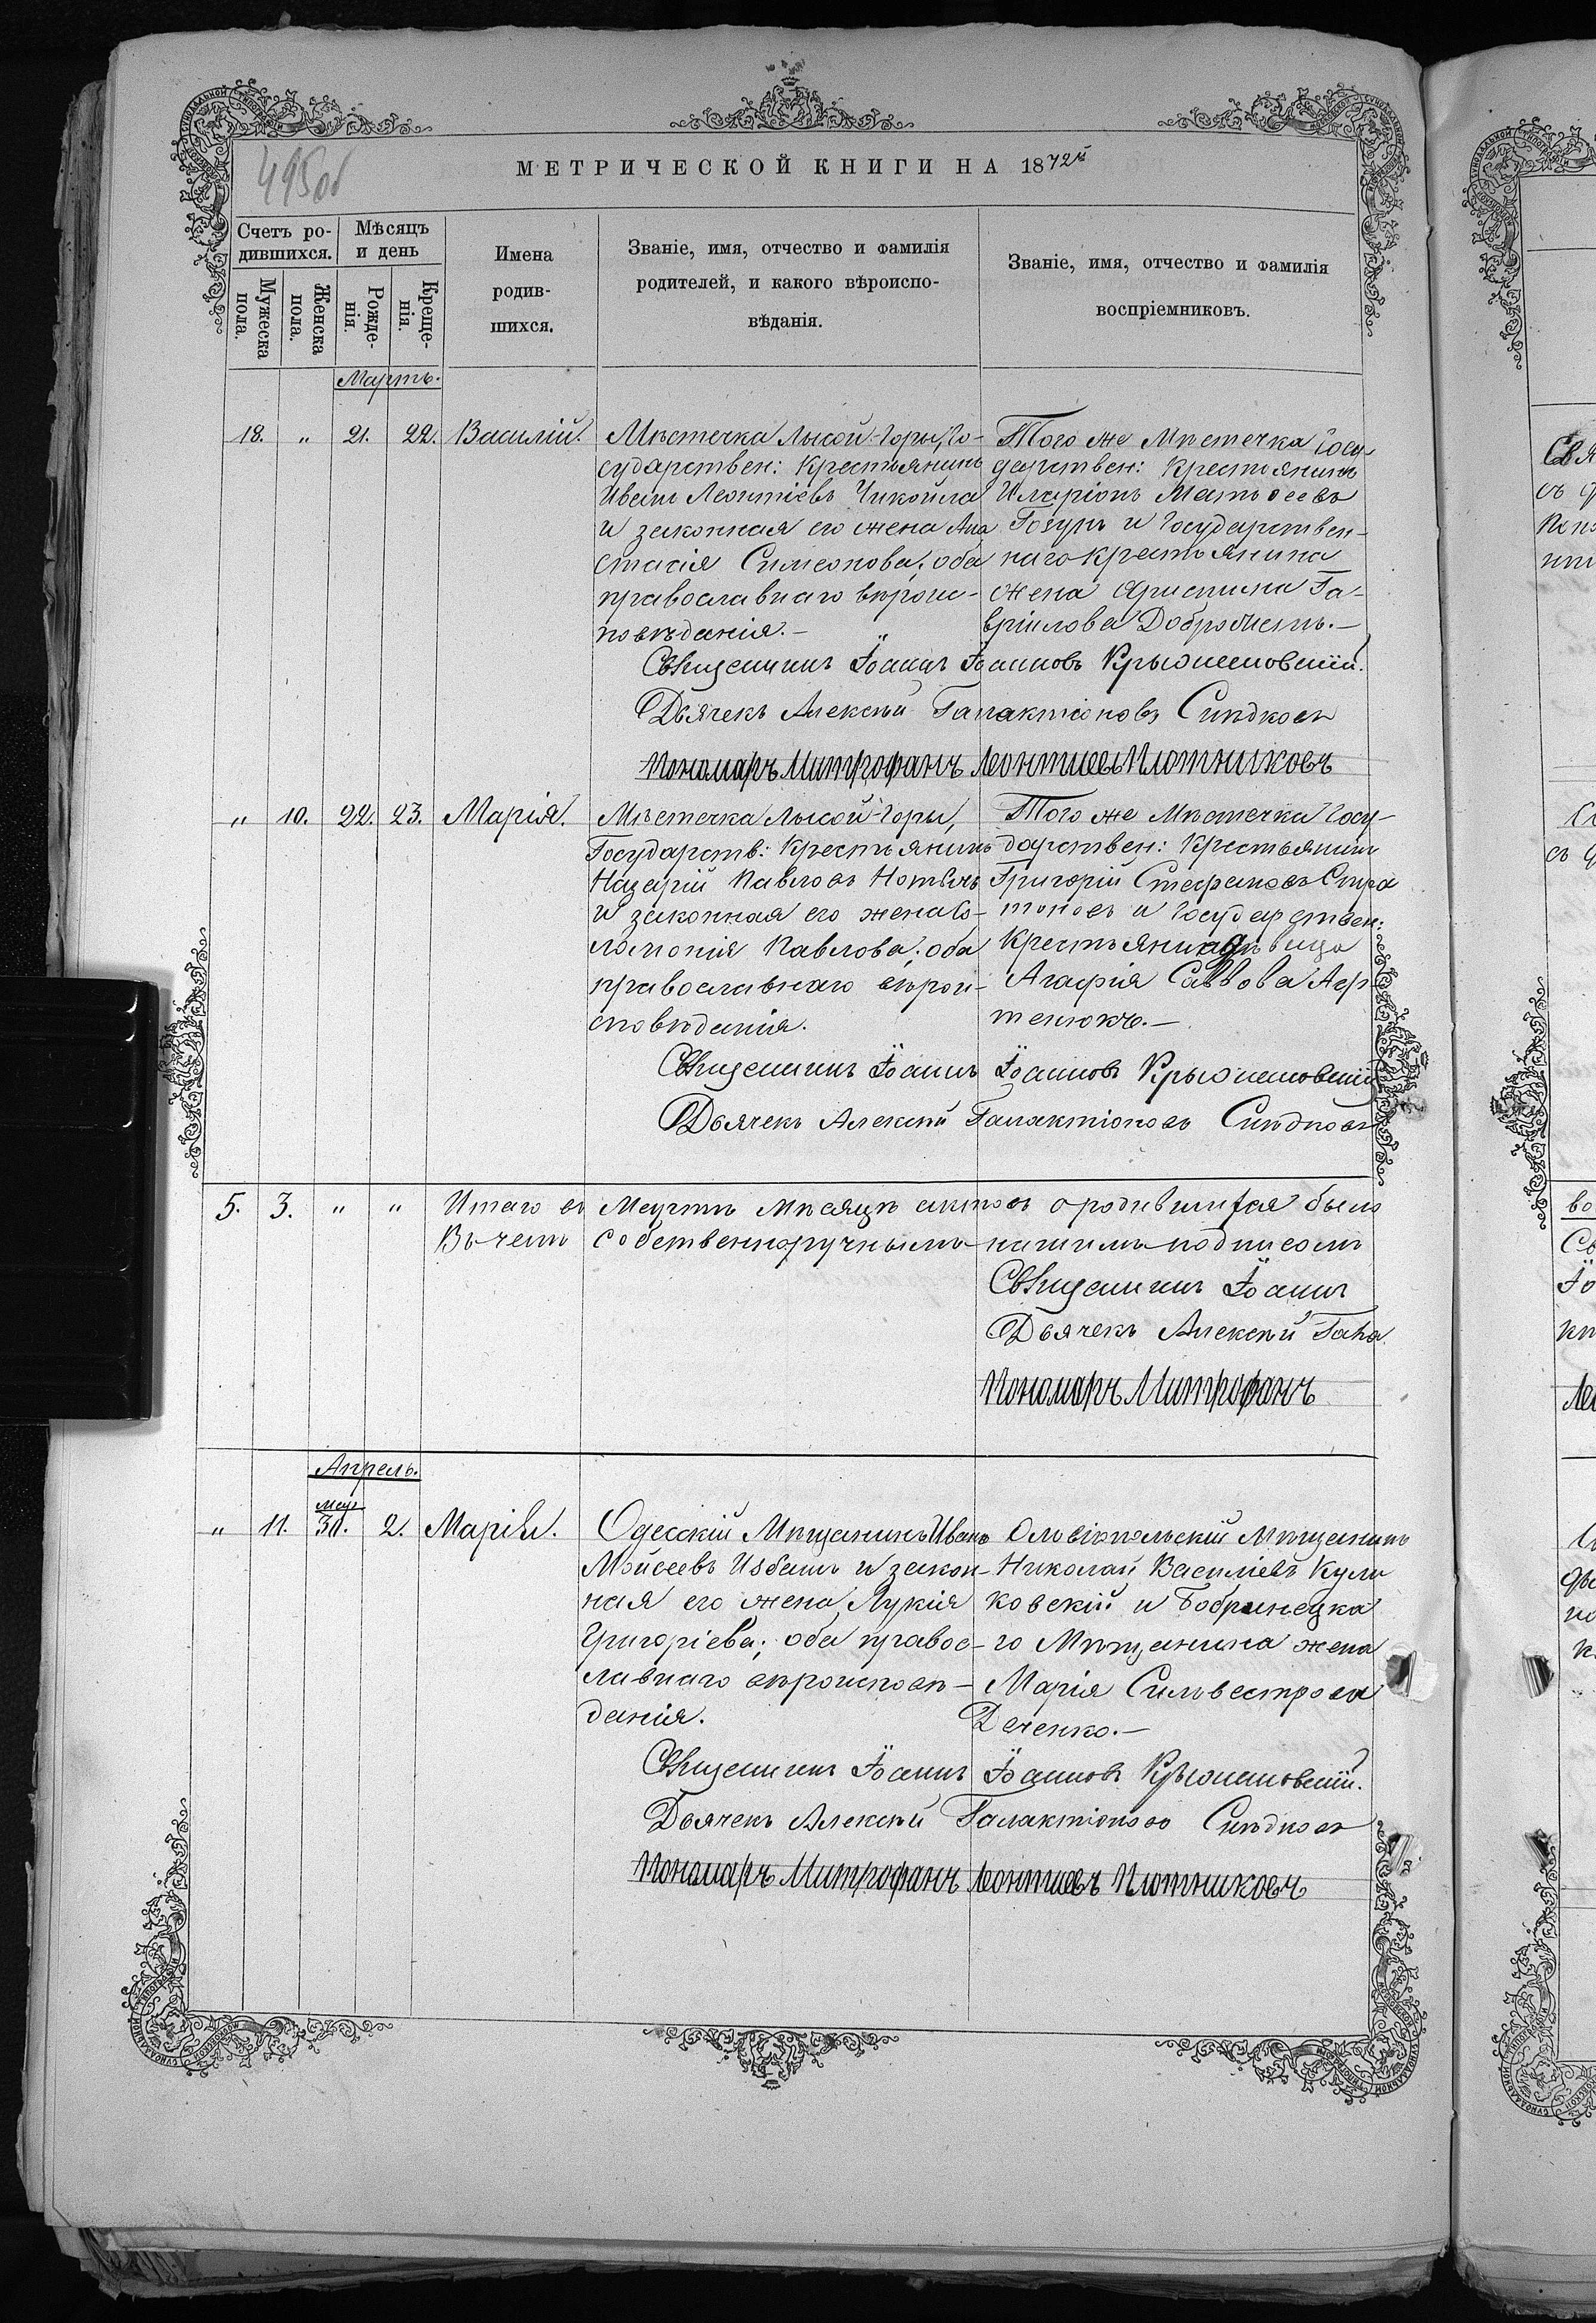 495об
МЕТРИЧЕСКОЙ КНИГИ НА 1872й
Счетъ ро-
дившихся.
Мѣсяцъ
и день
Мужеска
пола.
Женска
пола.
Рожде-
нія.
Креще-
нія.
Имена
родив-
шихся.
Званіе, имя, отчество и фамилія
родителей, и какого вѣроиспо-
вѣданія.
Званіе, имя, отчество и фамилія
воспріемниковъ.
Мартъ.
18. " 21. 22. Василій.
Мѣстечка Лысой-Горы, Го-
сударствен: Крестьянинъ
Иванъ Леонтіевъ Чикойла
и законная его жена Ана
стасія Симеонова; оба
православнаго вѣроис-
повѣданія.-
Того же Мѣстечка Госу-
дарствен: Крестьянинъ
Иларіонъ Матѳеевъ
Гозунъ и Государствен-
наго крестьянина
жена Христина Га-
вріилова
Священникъ Іоаннъ Іоанновъ Крыжановскій.
Дьячекъ Алексѣй Галактіоновъ Сѣдковъ
Пономаръ Митрофанъ Леонтиевъ Плотниковъ
" 10. 22. 23. Марія.
Мѣстечка Лысой-Горы,
Государств: Крестьянинъ
Назарій Павловъ
и законная его жена Со-
ломонія Павлова; оба
православнаго вѣрои-
сповѣданія.
Того же Мѣстечка Госу-
дарствен: Крестьянинъ
Григорій Стефановъ Стра
тоновъ и Государствен:
Крестьянина дѣвица
Агафія Саввова Аф-
тенюкъ.-
Священникъ Іоаннъ Іоанновъ Крыжановскій
Дьячекъ Алексѣй Галактіоновъ Сѣдковъ
5. 3. " " Итого въ Мартѣ мѣсяцѣ актовъ о родившихся было
В чемъ собственноручнымъ нашимъ подписомъ
Священникъ Іоаннъ
Дьячекъ Алексѣй Гала
Пономаръ Митрофанъ
Апрель.
Мар
" 11. 31. 2. Маріи.
Одесскій Мѣщанинъ Иванъ
Мойсеевъ Избашъ и закон-
ная его жена Лукія
Григоріева; оба правос-
лавнаго вѣроисповѣ-
данія.
Ольвіопольскій Мѣщанинъ
Николай Василіевъ Кули
ковскій и Бобринецка
го Мѣщанина жена
Марія Сильвестрова
Деченко.-
Священникъ Іоаннъ Іоанновъ Крыжановскій.
Дьячекъ Алексѣй Галактіоновъ Сѣдковъ
Пономаръ Митрофанъ Леонтиевъ Плотниковъ